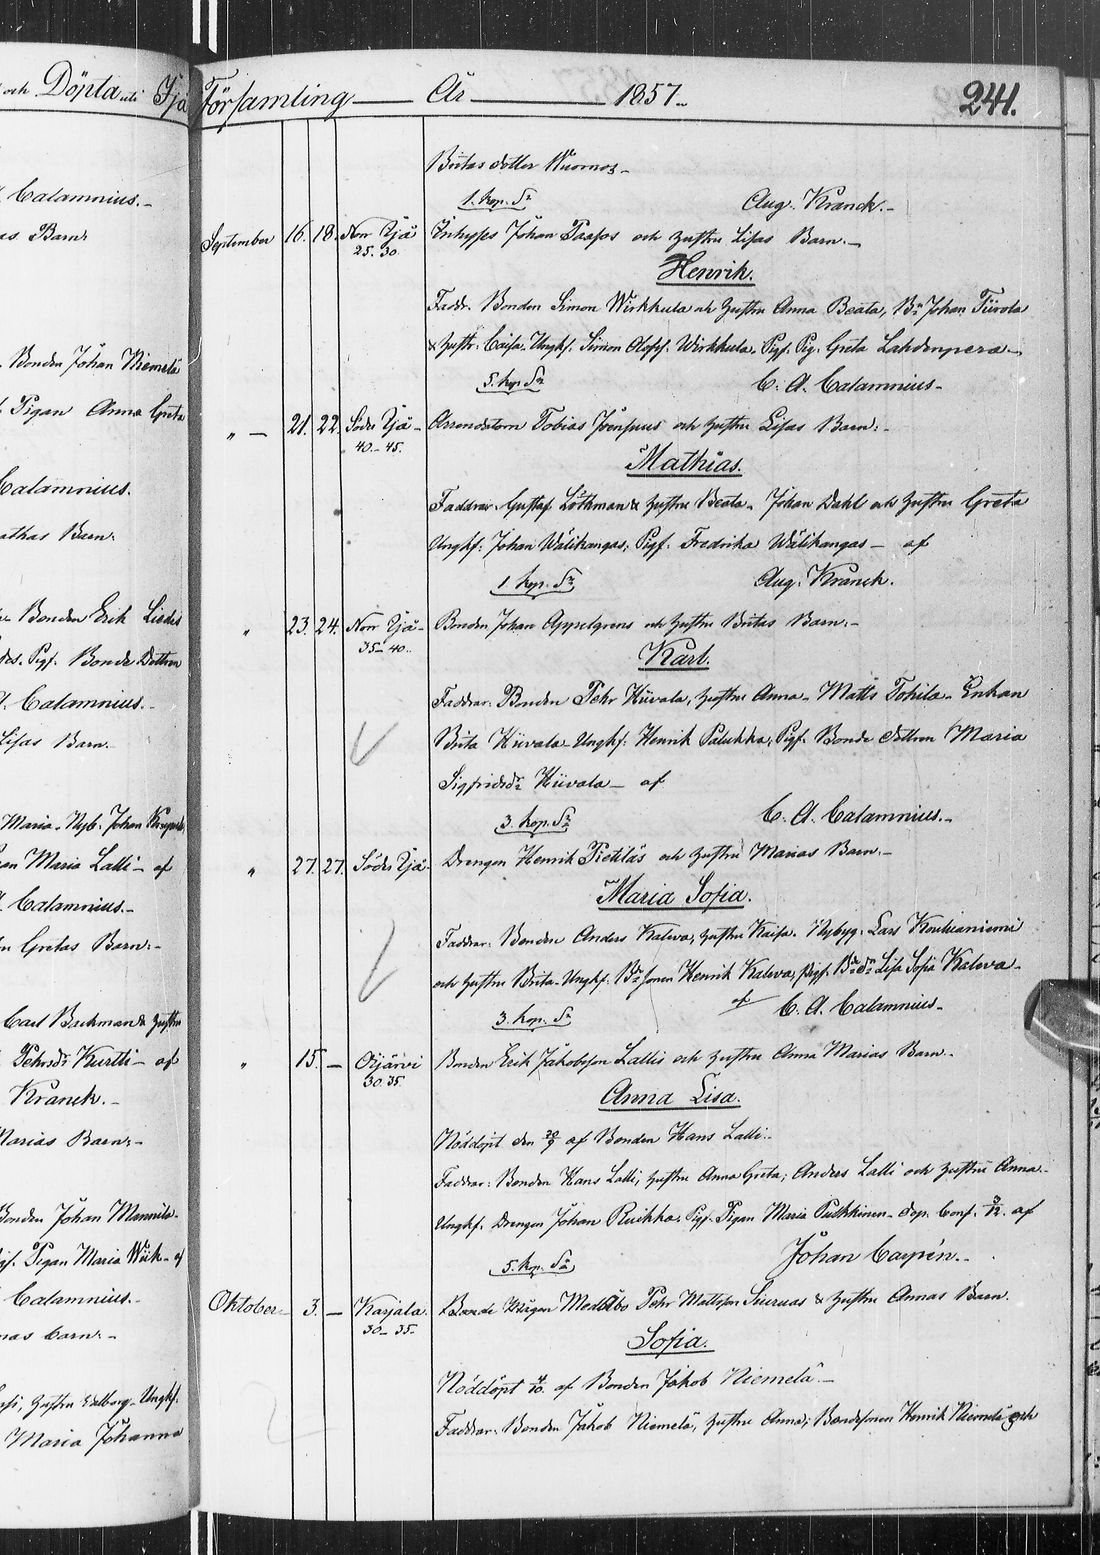 och Döpta uti Ijä
Calamnius.-
as Barn:
Bonden Johan Niemelä
Pigan Anna Greta
Calamnius.
athas Barn:
Bonden Erik Liedes
des. Pigf. Bonde Dottren
Calamnius.-
Lisas Barn.-
Maria- Nyb. Johan
Maria Lalli- af
Calamnius.-
Gretas Barn:-
Carl Backman & hustru
Pehrsdr Kurtti- af
Kranck.-
Marias Barn:-
Bonden Johan Mannila-
Pigan Maria Wiik- af
Calamnius.-
nas barn:-
hustru Walborg- Ungkf.
Maria Johanna
Församling — År — 1857.- 241.
Britas dotter Wuornos-
1. kop. Sr Aug. Kranck.-
September 16. 18. Norr Ijä 25. 30. Inhyses Johan Paasos och hustru Lisas Barn.-
Henrik.
Faddr. Bonden Simon Wirkkula och hustru Anna Beata, Bn Johan Tiirola
& hustr. Caisa. Ungkf. Simon Olofsf. Wirkkula. Pigf. Pig. Greta Lahdenperä-
5. kop Sr C. A. Calamnius-
" — 21. 22. Södr Ijä- 40.- 45. Arrendatorn Tobias Joensuus och hustru Lisas Barn:-
Mathias.
Faddrar: Gustaf Löthman & hustru Beata- Johan Dahl och hustru Greta
Ungkf: Johan Wälikangas; Pigf. Fredrika Wälikangas- af
1. kop. Sr Aug. Kranck.
" 23. 24. Norr Ijä- 35- 40.. Bonden Johan Appelgrens och hustru Britas Barn:-
Karl.
Faddrar: Bonden Pehr Hiivala, hustru Anna- Matts Tohila- Enkan
Brita Hiivala- Ungkf: Henrik Palukka, Pigf. Bonde dottren Maria
Sigfridsdr Hiivala- af
3. kop. Sr C. A. Calamnius.-
" 27. 27. Söder Ijä- Drengen Henrik Pietiläs och hustru Marias Barn.-
Maria Sofia.
Faddrar: Bonden Anders Kaleva, hustru Kaisa. Nybyg. Lars Koutianiemi
och hustru Brita- Ungkf. Bde sonen Henrik Kaleva, Pigf. Bde dr Lisa Sofia Kaleva-
af C. A. Calamnius-
3. kop. Sr
" 15. — Oijärvi 30. 35. Bonden Erik Jakobsson Lallis och hustru Anna Marias Barn.-
Anna Lisa.
Nöddöpt den 20/9 af Bonden Hans Lalli.-
Faddrar: Bonden Hans Lalli, hustru Anna Greta; Anders Lalli och hustru Anna-
Ungkf. Drengen Johan Ruikka. Pigf. Pigan Maria Pulkkinen- Dop. Conf. af
5. kop. Sr Johan Carpén.-
Oktober- 3. — Karjala. 30- 35- Pehr Mattsson Suruas & hustru Annas Barn.
Sofia.
Nöddöpt 4/10. af Bonden Jakob Niemelä-
Faddrar: Bonden Jakob Niemelä, hustru Anna; Bondesonen Henrik Niemelä och